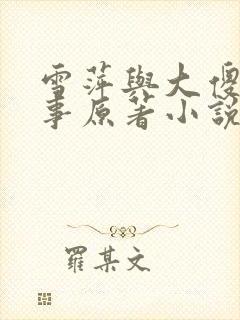 雪萍與大傻
事原著小説
羅某文